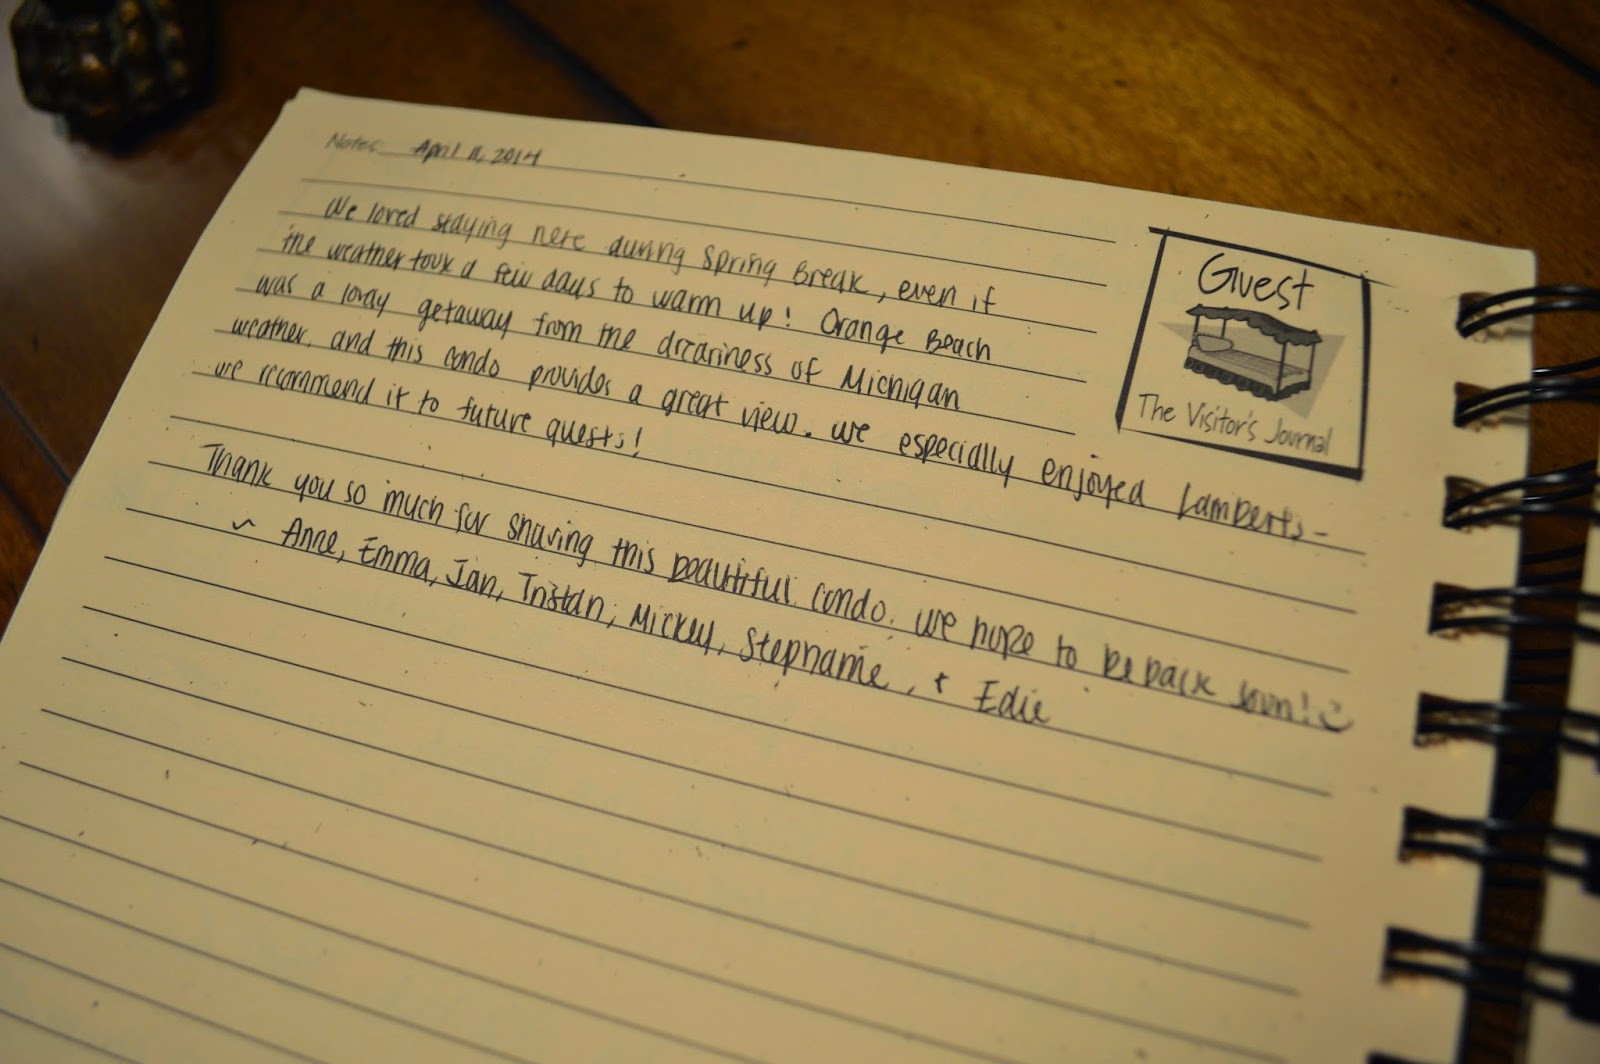 Notes: April 11, 2014
We loved staying here during Spring Break, even if
the weather took a few days to warm up! Orange Beach
was a lovely getaway from the dreariness of Michigan
weather, and this condo provides a great view. We especially enjoyed Lamberts -
we recommend it to future guests!
Thank you so much for sharing this beautiful condo. We hope to be back soon!
~ Anne, Emma, Ian, Tristan, Mickey, Stephanie, + Edie
Guest
The Visitor's Journal